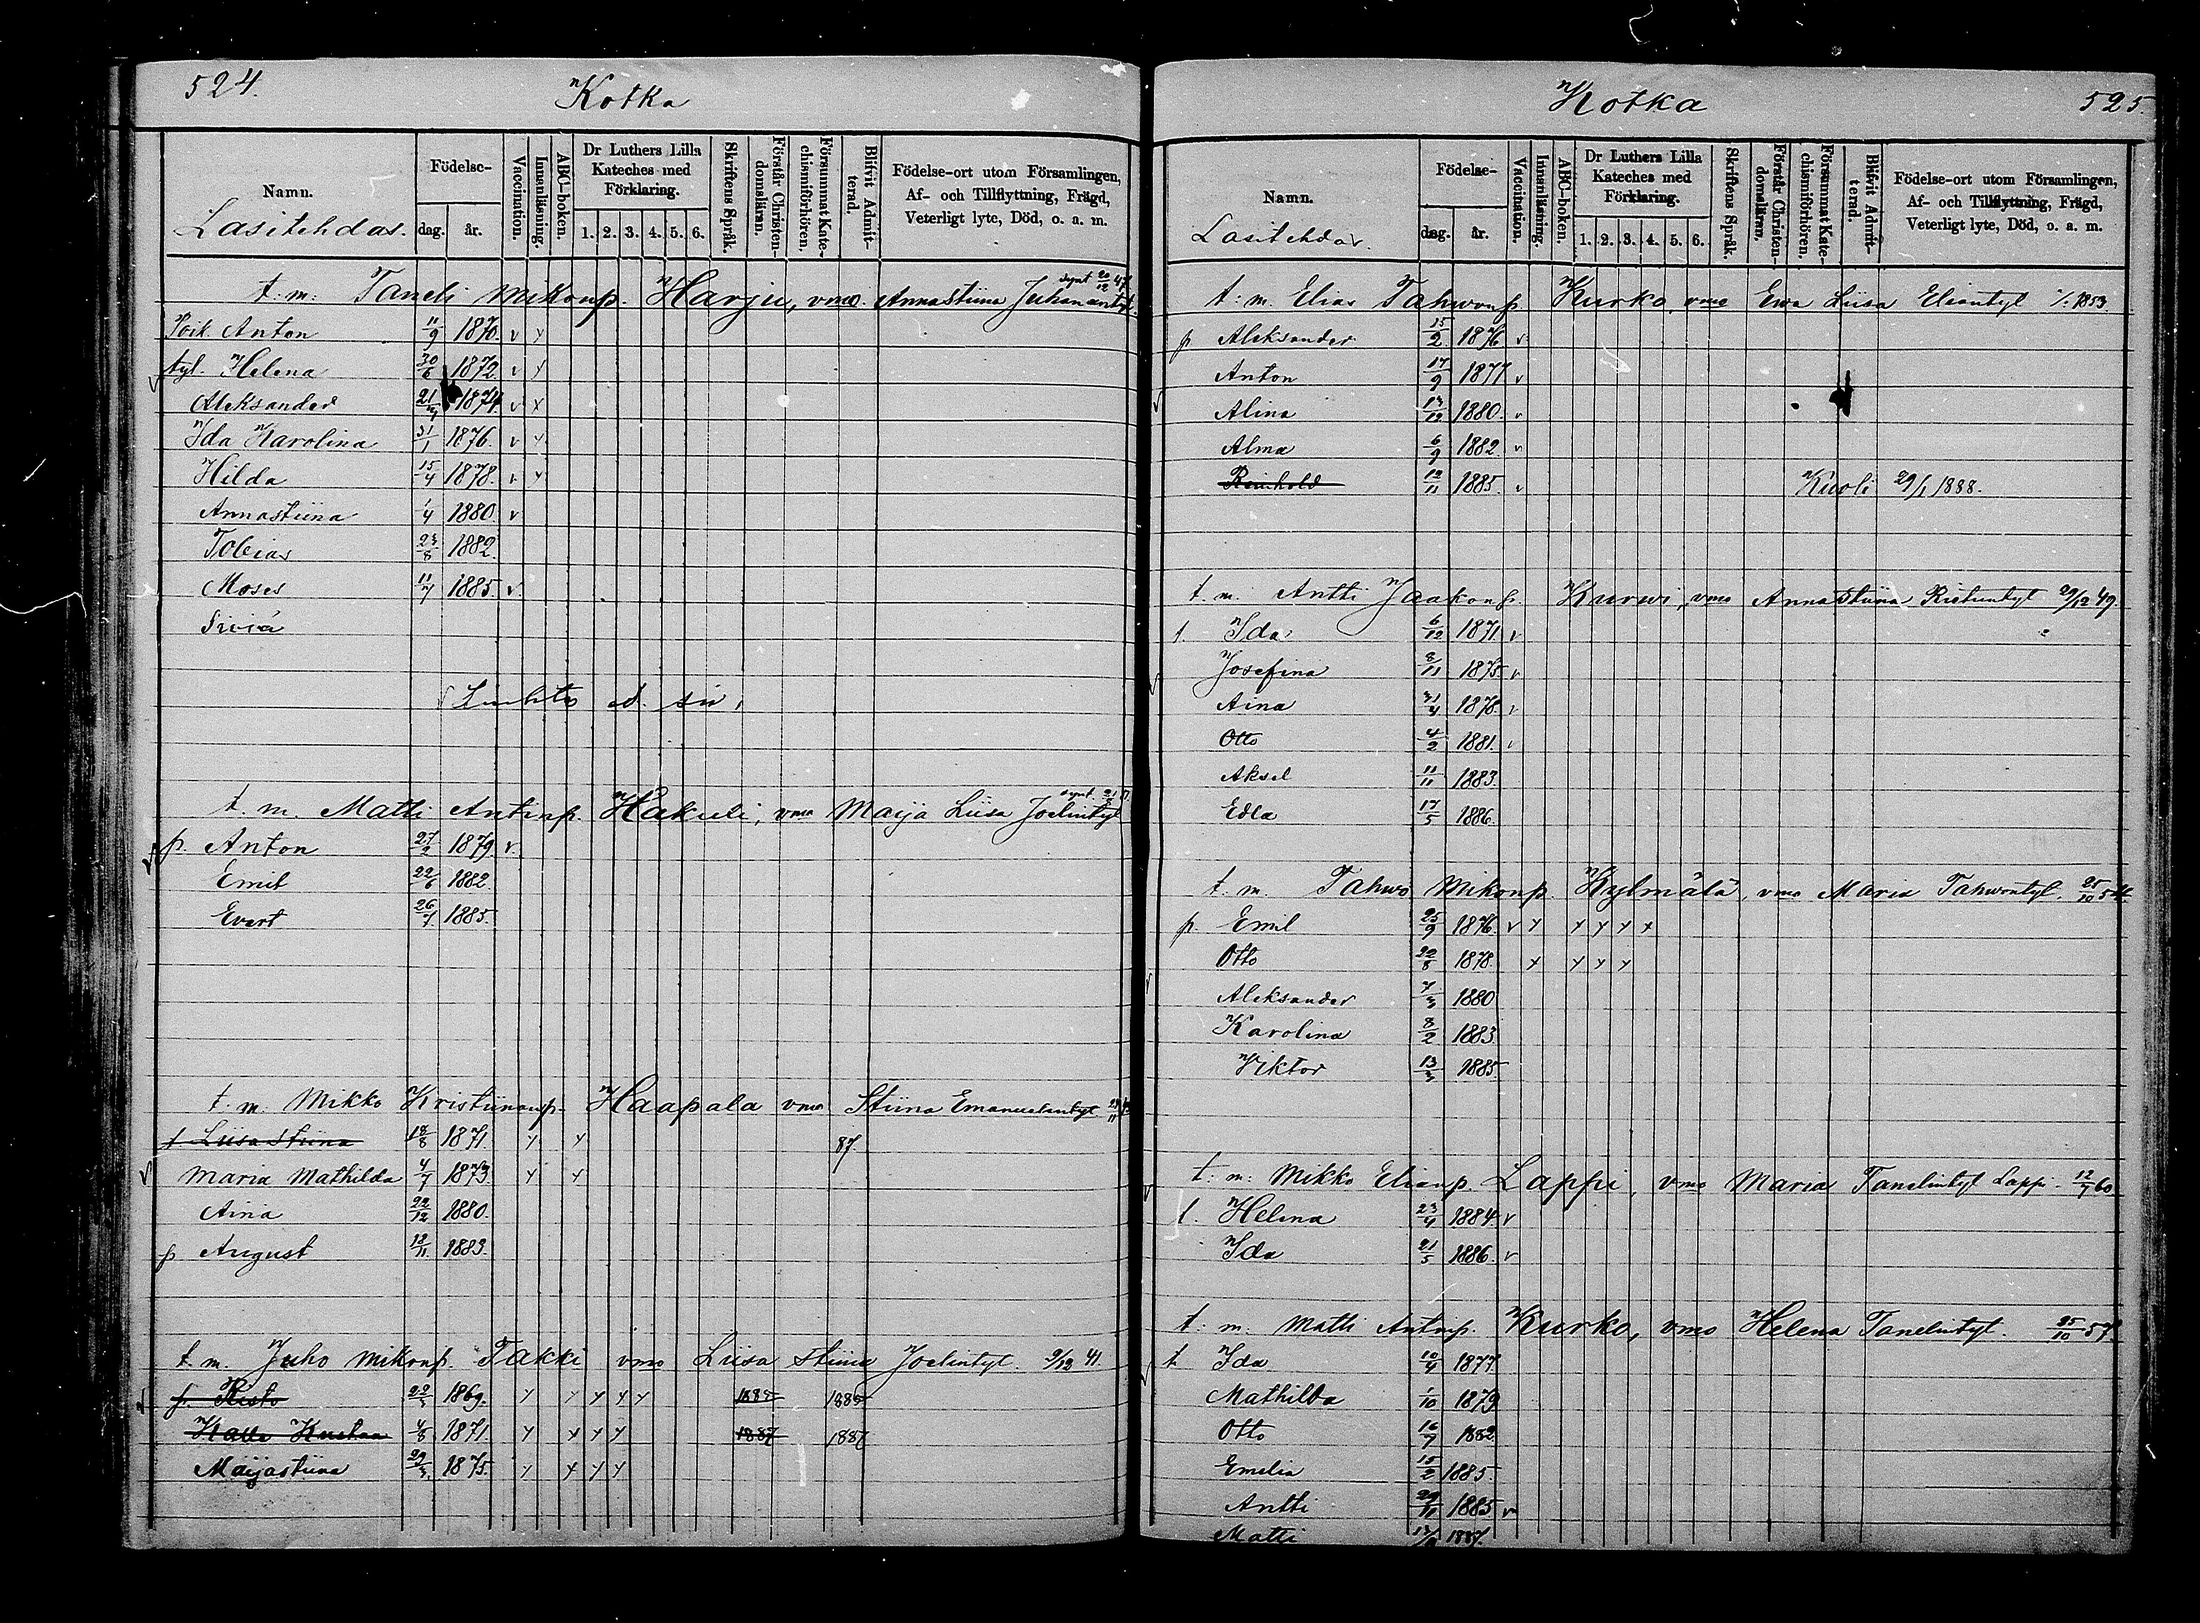 524.
Kotka
Namn.
Lasitehdas.
Födelse-
dag.
år.
Vaccination.
Innanläsning.
ABC-boken.
Dr Luthers Lilla
Kateches med
Förklaring.
1. 2. 3. 4. 5. 6.
Skriftens Språk.
Förstår Christen-
domsläran.
Försummat Kate-
chismiförhören.
Blifvit Admit-
terad.
Födelse-ort utom Församlingen,
Af- och Tillflyttning, Frägd,
Veterligt lyte, Död, o. a. m.
t. m: Taneli Mikonp. Harju, vmo. Annastiina Juhanantyt.
Poik Anton 11/9 1870. v x
tyt. Helena 30/6 1872 v x
Aleksander 1874 v x
Ida Karolina 31/1 1876. v x
Hilda 15/4 1878. v x
Annastiina 1/4 1880. v
Tobias 23/8 1882.
Moses 11/7 1885. v
t. m. Matti Antinp. Hakuli, vmo Maija Liisa Joelintyt
p. Anton 27/2 1879. v
Emil 22/6 1882.
Evert 26/7 1885.
t. m. Mikko Kristiinanp. Haapala vmo Stiina Emanuelintyt
t Liisa Stiina 18/8 1871. x x 87.
Maria Mathilda 4/7 1873. x x
Aina 22/12 1880.
p August 12/11 1883.
t. m. Juho Mikonp. Takki vmo Liisa Stiina Joelintyt. 9/12 41.
p. Risto 22/3 1869. x x x x x 1885 1885
Kalle Kustaa 4/8 1871. x x x x 1887 1887
Maijastiina 29/3 1875. x x x x
Kotka
525.
Namn.
Lasitehdas.
Födelse-
dag.
år.
Vaccination.
Innanläsning.
ABC-boken.
Dr Luthers Lilla
Kateches med
Förklaring.
1. 2. 3. 4. 5. 6.
Skriftens Språk.
Förstår Christen-
domsläran.
Försummat Kate-
chismiförhören.
Blifvit Admit-
terad.
Födelse-ort utom Församlingen,
Af- och Tillflyttning, Frägd,
Veterligt lyte, Död, o. a. m.
t: m. Elias Tahwonp. Kurko, vmo Ewa Liisa Eliantyt 1853.
p Aleksander 15/2 1876 v
Anton 17/9 1877 v
Alina 13/12 1880. v
Alma 6/9 1882. v
Reinhold 12/11 1885. v Kuoli 29/1 1888.
t. m. Antti Jaakonp. Kurwi, vmo Annastiina Ristontyt 29/12 49.
t. Ida 6/12 1871 v
Josefina 8/11 1875. v
Aina 1878. v
Otto 4/2 1881. v
Aksel 11/11 1883.
Edla 17/5 1886.
t. m. Tahwo Mikonp. Kylmälä, vmo Maria Tahwontyt. 25/10 54
p. Emil 25/9 1876. v x x x x x
Otto 22/8 1878. x x x x
Aleksander 7/3 1880
Karolina 8/2 1883
Viktor 13/3 1885.
t. m: Mikko Elianp. Lappi, vmo Maria Tanelintyt Lappi. 12/7 60
t. Helena 23/4 1884 v
Ida 21/5 1886. v
t: m: Matti Antinp. Kurko, vmo Helena Tanelintyt. 25/10 57.
t. Ida 10/4 1877.
Mathilda 1/10 1879
Otto 16/7 1882
Emelia 15/2 1885.
Antti 29/11 1885 v
Matti 1887.